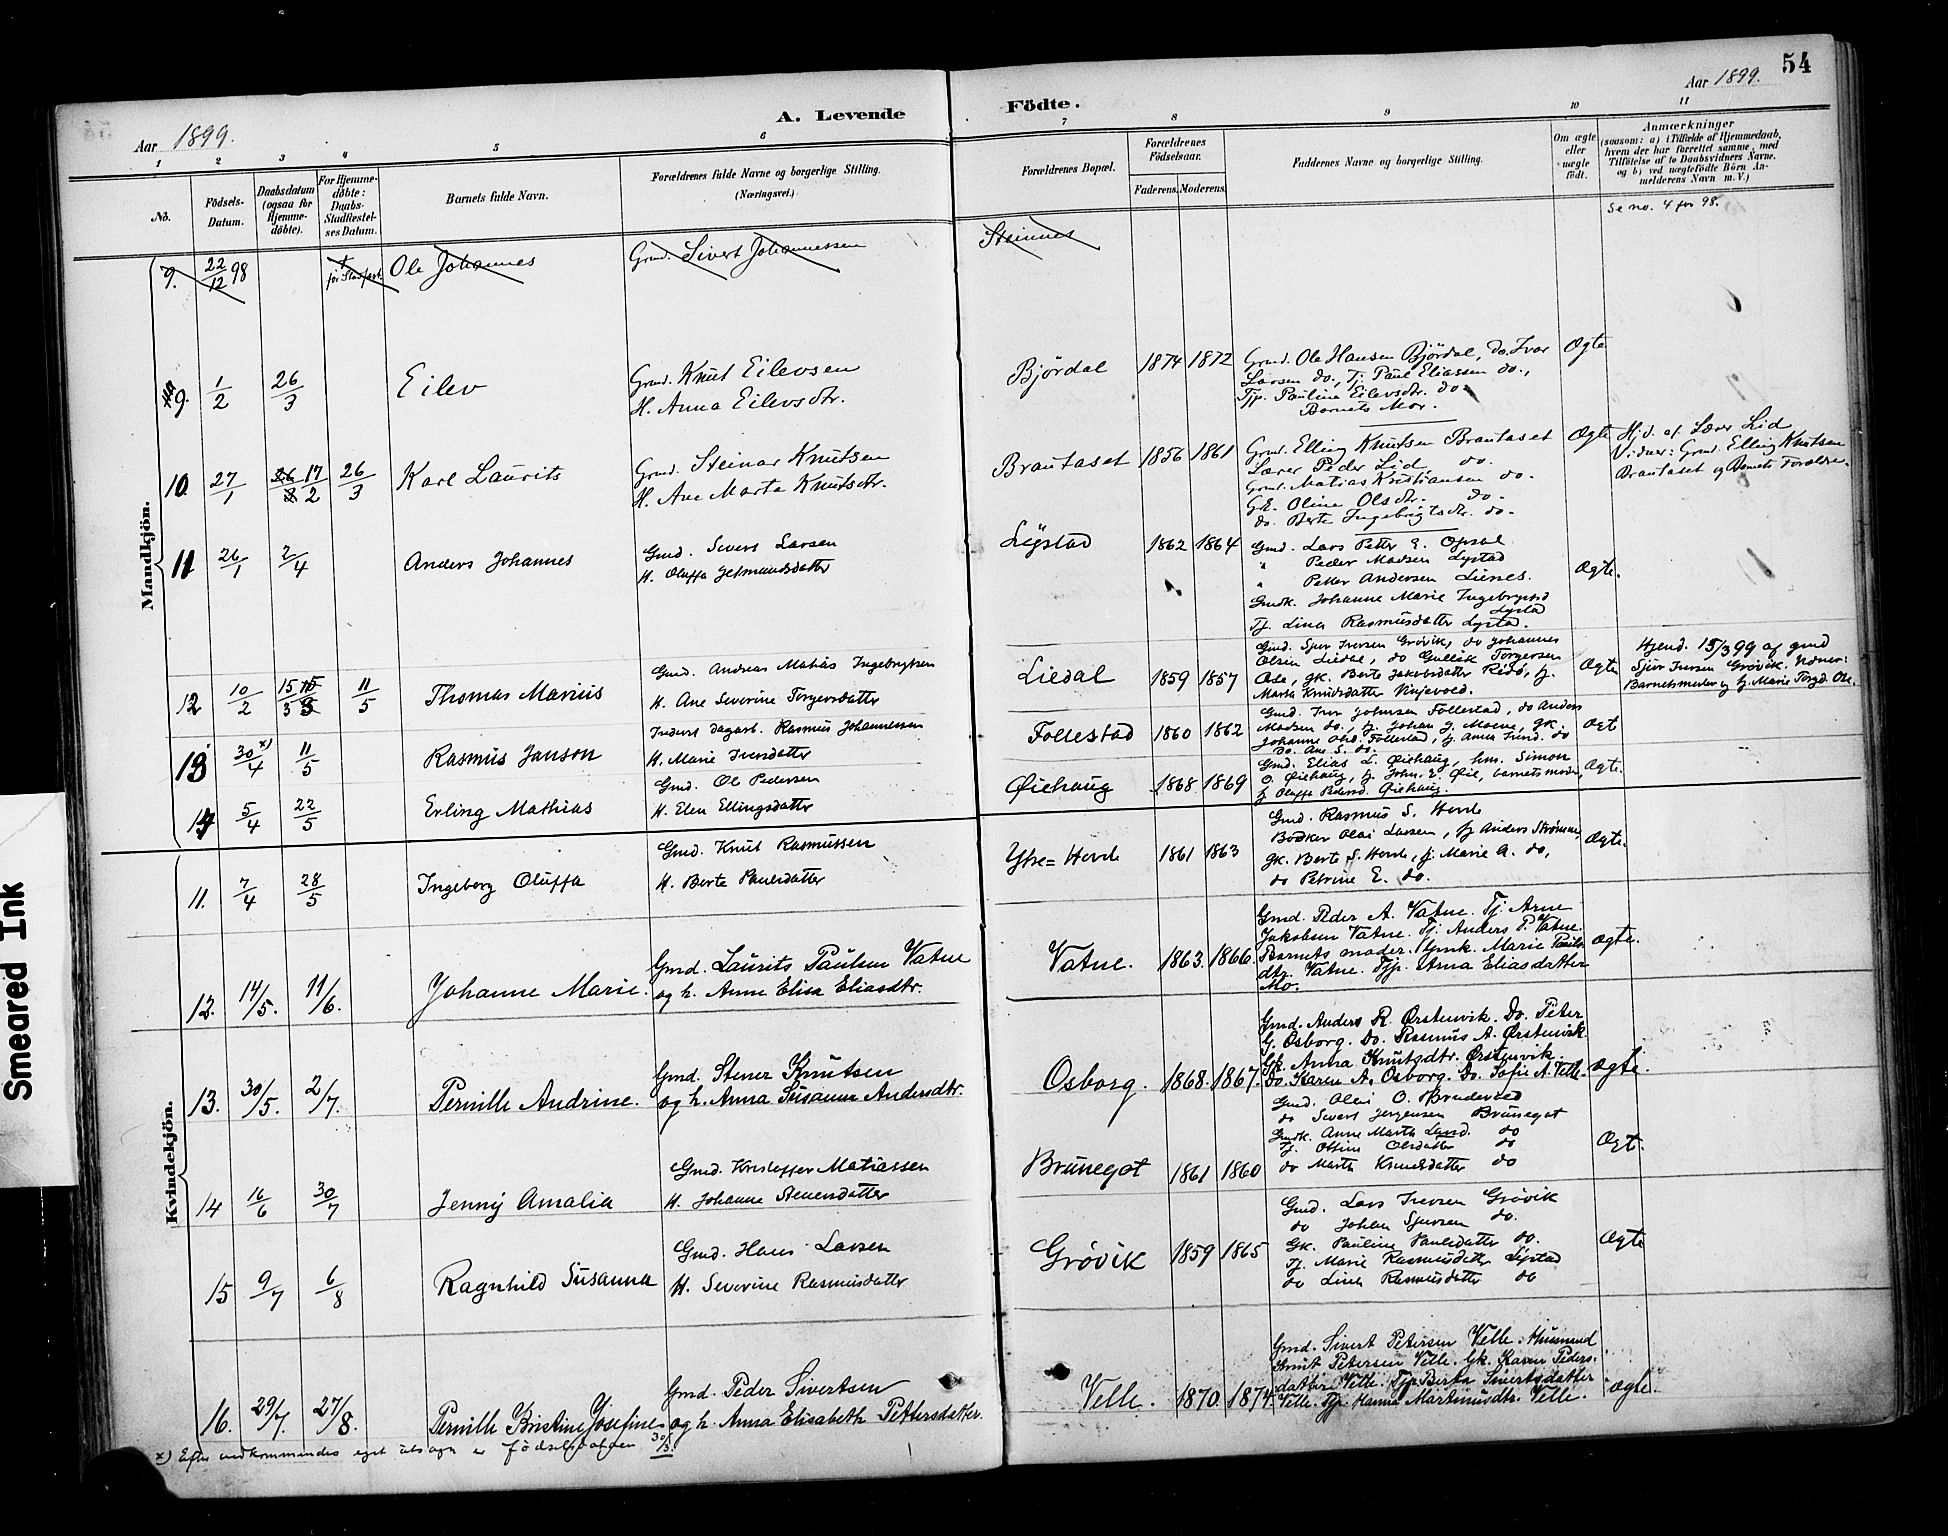 54
Aar 1899.
A. Levende
Aar 1899.
1
2
3
4
5
6
No.
Födsels-
Datum.
Daabsdatum
(ogsaa for
Hjemme-
döbte).
For Hjemme-
döbte:
Daabs-
Stadfestel-
ses Datum.
Barnets fulde Navn.
Forældrenes fulde Navne og borgerlige Stilling.
(Næringsvei.)
Mandkjön.
9. 22/12 98 Ole Johannes Grmd. Sivert Johannessen
9. 1/2 26/3 Eilev Grmd. Knut Eilevsen
H. Anna Eilevsdtr.
10. 27/1 26/3 17/2 26/3 Karl Laurits Grmd. Steinar Knutsen
H. Ane Marta Knutsdtr.
11 26/1 2/4 Anders Johannes Gmd. Sivert Larsen
H. Oluffa Jetmundsdatter
12 10/2 15/3 11/5 Thomas Marius Gmd. Andreas Matias Ingebrigtsen
H. Ane Severine Torgersdatter
13 30/4 x) 11/5 Rasmus Janson Inderst dagarb. Rasmus Johannessen
H. Marie Iversdatter
14 5/4 22/5 Erling Mathias Gmd. Ol Pedersen
H. Elen Ellingsdatter
Kvindekjön.
11. 7/4 28/5 Ingeborg Oluffa Gmd. Knut Rasmussen
H. Berte Paulsdatter
12. 14/5. 11/6. Johanne Marie. Gmd. Laurits Paulsen Vatne
og h. Anne Elisa Eliasdtr.
13. 30/5. 2/7. Pernille Andrine. Gmd. Stener Knutsen
og h. Anna Susanna Andersdtr.
14 16/6 30/7 Jenny Amalia Gmd. Kristoffer Matiassen
H. Johanne Stenersdatter
15 9/7 6/8 Ragnhild Susanna Gmd. Hans Larsen
H. Severine Rasmusdatter
16. 29/7. 27/8. Pernille Kristine Josefine Gmd. Peder Sivertsen
og h. Anna Elisabeth Pettersdatter.
x) Efter vedkommendes eget udsagn er födselsdagen 30/3.
Födte.
7
8
9
10
11
Forældrenes Bopæl.
Forældrenes
Födselsaar.
Faderens. Moderens.
Faddernes Navne og borgerlige Stilling.
Om ægte
eller
uægte
födt.
Anmærkninger
(saasom: a) i Tilfælde af Hjemmedaab,
hvem der har forrettet samme, med
Tilföielse af to Daabsvidners Navne.
og b) ved uægtefödte Börn An-
melderens Navn m. V.)
Se no. 4 for 98.
Steinnes
Bjørdal 1874 1872 Grmd. Ole Hansen Bjørdal, do. Ivar Ægte
Larsen do., Tj. Paul Eliassen do.,
Tjp. Pauline Eilevsdtr. do.
Barnets Mor.
Brautaset 1856 1861 Grmd. Elling Knutsen Brautaset Ægte
Lærer Peder Lid do.
Grmd. Matias Kristiansen do.
Gk. Oline Olsdtr. do.
do. Berte Ingebrigtsdtr. do.
Hjd. af Lærer Lid
Vidner: Grmd. Elling Knutsen
Brautaset og Barnets Forældre.
Lystad 1862 1864 Gmd. Lars Petter E. Opsal
" Peder Madsen Lystad
" Petter Andersen Lienes. Ægte.
Gmdk. Johanne Marie Ingebrigtsd
Lystad
Tj. Lina Rasmusdatter Lystad.
Liedal 1859 1857 Gmd. Sjur Iversen Grøvik, do Johannes
Olsen Liedal, do Gullik Torgersen Ægte
Ose, gk. Berte Jakobsdatter Ridö, tj.
Marta Knudsdatter Vinjevold.
Hjemd. 15/3 99 af gmd
Sjur Iversen Grøvik. Vidner:
Barnets moder og tj. Marie Torgd. Ose.
Follestad 1860 1862 Gmd. Iver Johnsen Follestad, do Anders Ægt
Madsen do, tj. Johan J. Moene, gk.
Johanne Olsd. Follestad, tj Anna Iversd. do
do. Ane S. do.
Øiehaug 1868 1869 Gmd. Elias L. Øiehaug, hm. Simon Ægt.
O. Øiehaug, tj. John. E. Øie, barnets moder,
tj Oluffa Pedersd. Øiehaug.
Ytre=Hovde 1861 1863 Gmd. Rasmus S. Hovde
Bödker Olai Larsen, tj Anders Strömme, Ægte.
gk. Berte S. Hovde, tj. Marie A. do,
do Petrine E. do.
Vatne. 1863. 1866. Gmd. Peder A. Vatne. Tj. Arne
Jakobsen Vatne. Tj. Anders P. Vatne. Ægte.
Barnets moder. Gmk. Marie Pauls-
dtr. Vatne. Tjp. Anna Eliasdatter
Mo.
Osborg. 1868. 1867. Gmd. Anders R. Ørstenvik. Do. Peter
G. Osborg. Do. Rasmus A. Ørstenvik
Gk. Anna Knutsdtr. Ørstenvik.
Do. Karen A. Osborg. Do. Sofie A. Velle. Ægte.
Brunegot 1861 1860 Gmd. Olai O. Brudevold
do Sivert Jørgensen Brunegot
Gmdk. Anne Marta Larsd. do
Tj. Oline Olsdatter do Ægt.
do Marta Knudsdatter do
Grövik 1859 1865 Gmd. Lars Iversen Grövik
do Johan Sjursen do. Ægte
Gk. Pauline Paulsdatter do.
Tj. Marie Rasmusdatter Lystad
do Lina Rasmusdatter do
Velle. 1870. 1874. Gmd. Sivert Petersen Velle. Husmand
Knut Petersen Velle. Gk. Karen Peders-
datter Velle. Tjp. Berta Sivertsdatter Ægte.
Velle. Tjp. Hanna Martinusdtr. Velle.
Smeared Ink